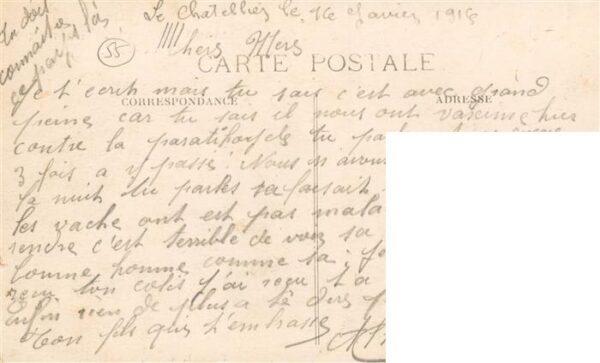 Tu dois
connaitre
ce pays là
55
Le Chatellier le 16 Janvier 1916
Chers Mers
CARTE POSTALE
CORRESPONDANCE
ADRESSE
Je t'ecrit mais tu sais c'est avec grand
peine car tu sais il nous ont vaccine hier
contre la paratihoyde tu parles
3 fois a y passé! Nous n avons
la nuit tu parles sa faisait
les vache ont est pas mala
rendre c'est terrible de voir sa
comme homme comme sa
reçu ton colis j'ai reçu
Enfin rien de plus a te dire
Ton fils qui t'embrasse